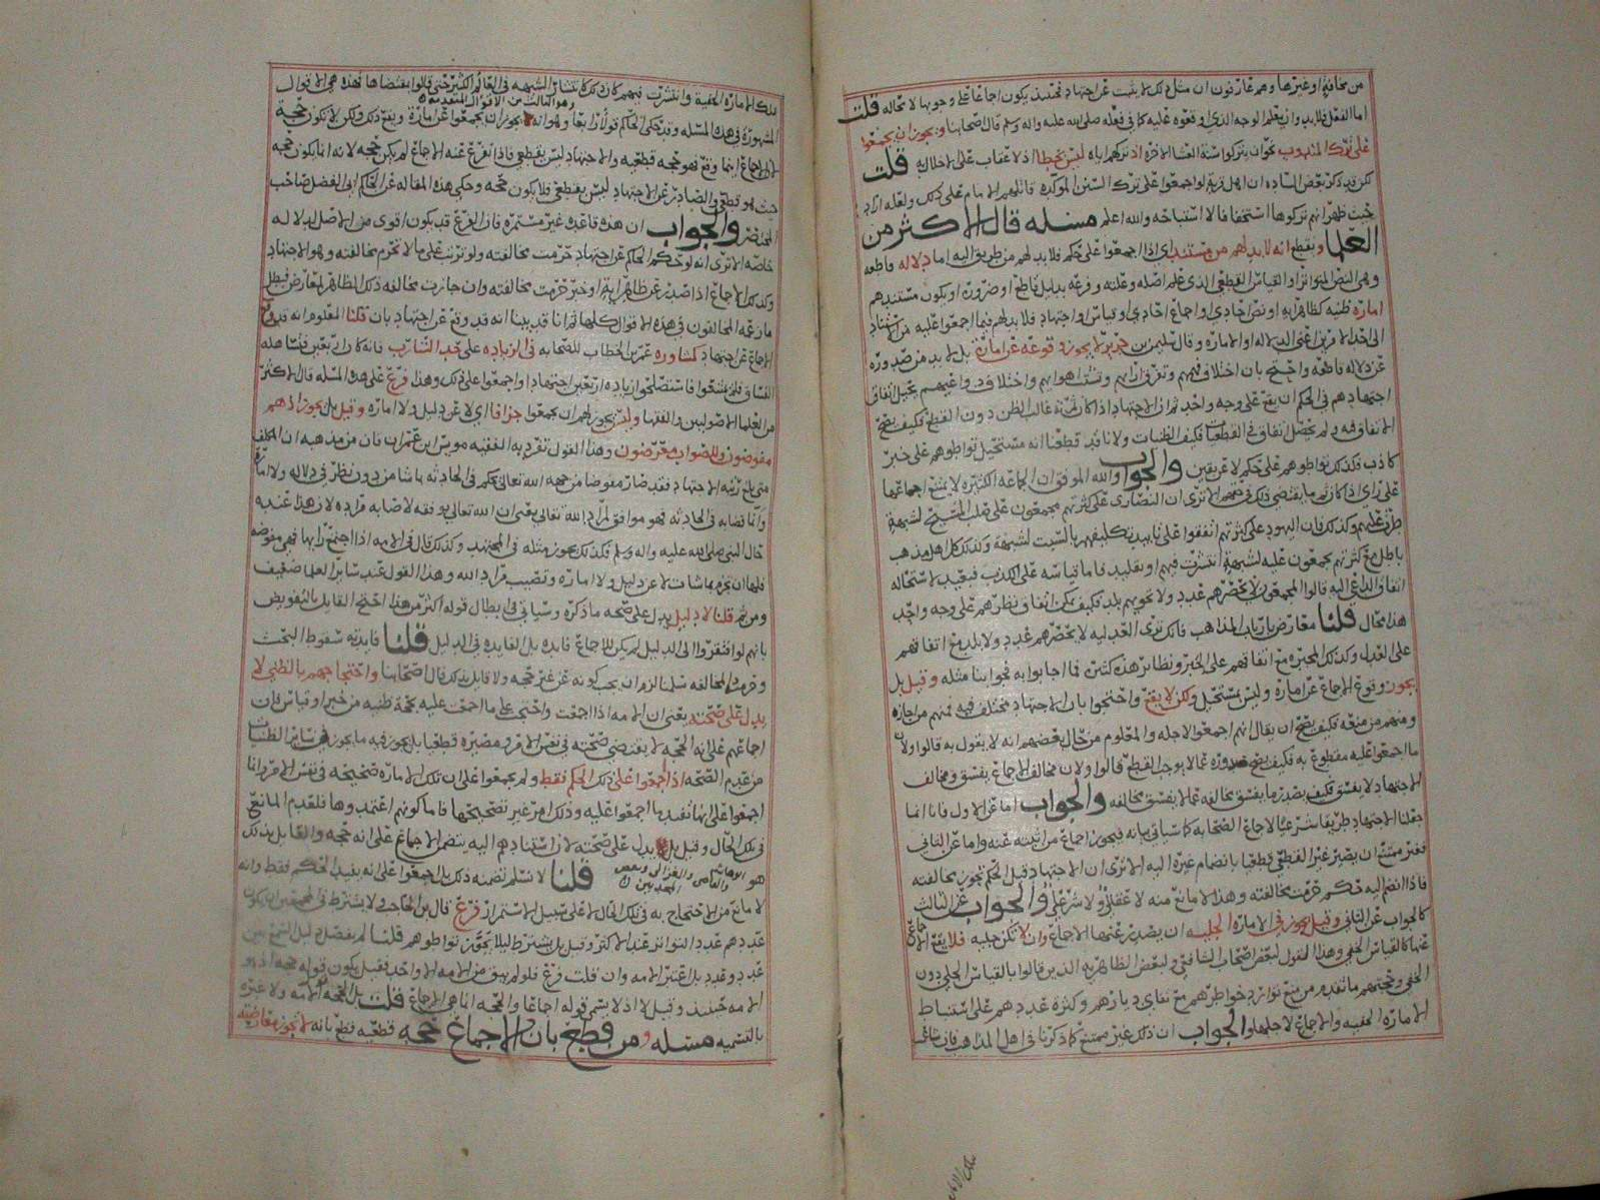 من مخافة او غيرها وهم عارفون ان مثل ذلك لا يثبت عن اجتهاد فحينئذ يكون اجماعا على وجوبها لا محاله قلت
اما الفعل فلا بد وان يعلم الوجه الذي اوقعوه عليه كما في فعله صلى الله عليه واله وسلم قال اصحابنا ويجوز ان يجمعوا
على ترك المندوب نحو ان يتركوا سنة العشا الاخره اذ تركهم اياه ليس بخطا اذ لا عقاب على الاخلال به قلت
لكن قد ذكر بعض الساده ان اهل قرية لو اجمعوا على ترك السنن الموكده قاتلهم الامام على ذلك ولعله اراد
بحيث ظهر انهم تركوها استخفافا لا استباحه والله اعلم مسئله قال الاكثر من
العلما ونقطع انه لا بد لهم من مستند اي اذا اجمعوا على حكم فلا بد لهم من طريق اليه اما دلاله قاطعه
وهي النص المتواتر او القياس القطعي الذي علم اصله وعلته وفرعه بدليل قاطع او ضرورة او يكون مستندهم
اماره ظنيه كظاهر ايه او نص احادي او اجماع احادي او قياس او اجتهاد فلا بد لهم فيما اجمعوا عليه من استناد
الى احد الامرين اعني الدلاله او الاماره وقال سليمن بن جرير لا يجوز وقوعه عن اماره بل لا بد من صدوره
عن دلاله قاطعه واحتج بان اختلاف هممهم وتفرق ارائهم وتشتت اهوائهم واختلاف دواعيهم يحيل اتفاق
اجتهادهم في الحكم ان يقع على وجه واحد ثم ان الاجتهاد اذا كان ثمرته غالب الظن دون القطع فكيف يصح
الاتفاق فيه ولم يحصل اتفاق في القطعيات فكيف الظنيات ولانا قد قطعنا انه مستحيل تواطوهم على خبر
كاذب فكذلك تواطوهم على حكم لا عن يقين والجواب والله الموفق ان الجماعه الكثيره لا يمتنع اجماعها
على راي اذا كان ثم ما يقتضي ذلك في ظنهم الا ترى ان النصارى على كثرتهم مجمعون على صلب المسيح لشبهة
طرت عليهم وكذلك فان اليهود على كثرتهم اتفقوا على تابيد تكليفهم بالسبت لشبهة وكذلك كل اهل مذهب
باطل مع كثرتهم مجمعون عليه لشبهة انتشرت فيهم او تقليد فاما قياسه على الكذب فبعيد لاستحاله
اتفاق الداعي اليه قالوا المجمعون لا يحصرهم عدد ولا تحويهم بلد فكيف يمكن اتفاق نظرهم على وجه واحد
هذا محال قلنا معارض بارباب المذاهب فانك ترى العدليه لا يحصرهم عدد ولا بلد مع اتفاقهم
على العدل وكذلك المجبره مع اتفاقهم على الجبر ونظائر هذه كثيرة فما اجابوا به فجوابنا مثله وقيل بل
يجوز وقوع الاجماع عن اماره وليس بمستحيل ولكن لا يقع واحتجوا بان الاجتهاد مختلف فيه فمنهم من اجازه
ومنهم من منعه فكيف يصح ان يقال انهم اجمعوا لاجله والمعلوم من حال بعضهم انه لا يقول به قالوا ولان
ما اجمعوا عليه مقطوع به فكيف يصح صدوره عما لا يوجب القطع قالوا ولان مخالف الاجماع يفسق ومخالف
الاجتهاد لا يفسق فكيف يصدر ما يفسق مخالفه عما لا يفسق مخالفه والجواب اما عن الاول فانا انما
جعلنا الاجتهاد طريقا شرعيا لاجماع الصحابه كما سياتي بيانه فيجوز اجماع من اثبته عنه واما عن الثاني
فغير ممتنع ان يصير غير القطعي قطعيا بانضمام غيره اليه الا ترى ان الاجتهاد قبل الحكم تجوز مخالفته
فاذا انضم اليه حكم حرمت مخالفته وهذا لا مانع منه لا عقلي ولا شرعي والجواب عن الثالث
كالجواب عن الثاني وقيل يجوز في الاماره الجليه ان يصدر عنها الاجماع وان لا تكن جليه فلا يقع الاجماع
عنها كالقياس الخفي وهذا القول لبعض اصحاب الشافعي ولبعض الظاهريه الذين قالوا بالقياس الجلي دون
الخفي وحجتهم ما تقدم من منع توارد خواطرهم مع تنائي ديارهم وكثرة عددهم على استنباط
الاماره الخفيه والاجماع لاجلها والجواب ان ذلك غير ممتنع كما ذكرنا في اهل المذاهب فان
تلك الاماره الخفية وانتشرت فيهم كان ذلك كانتشار الشبهه في العالم الكثير حتى قالوا بمقتضاها فهذه هي الاقوال
المشهورة في هذه المسئله وقد حكى الحاكم قولا رابعا وهو انه يجوز ان يجمعوا عن امارة ويقع ذلك ولكن لا تكون حجة
وهو الثالث من الاقوال المتقدمه
لان الاجماع اينما وقع فهو حجه قطعيه والاجتهاد ليس بقطعي فاذا تفرع عنه الاجماع لم يكن حجه لانه انما يكون حجه
حيث هو قطعي والصادر عن الاجتهاد ليس بقطعي فلا يكون حجه وحكى هذه المقاله عن الحاكم ابي الفضل صاحب
المختصر والجواب ان هذه قاعدة غير مستمره فان الفرع قد يكون اقوى من الاصل لدلاله
خاصه الا ترى انه لو حكم الحاكم عن اجتهاد حرمت مخالفته ولو ترتب على ما لا تحرم مخالفته وهو الاجتهاد
وكذلك الاجماع اذا صدر عن ظاهر ايه او خبر حرمت مخالفته وان جازت مخالفه ذلك الظاهر لمعارض فبطل
ما زعمه المخالفون في هذه الاقوال كلها ثم انا قد بينا انه قد وقع عن اجتهاد بان قلنا المعلوم انه قد وقع
الاجماع عن اجتهاد كمشاورة عمر بن الخطاب للصحابه في الزياده على حد الشارب فانه كان اربعين فلما شاهد
الفساق فلم يمتنعوا فاستصلحوا زياده اربعين اجتهادا واجمعوا على ذلك وهذا فرع على هذه المسئله قال الاكثر
من العلما الاصوليين والفقها وليس يجوز لهم ان يجمعوا جزافا اي لا عن دليل ولا اماره وقيل بل يجوز اذ هم
مفوضون وللصواب معرضون وهذا القول تفرد به الفقيه مويس ابن عمران فان من مذهبه ان المكلف
متى بلغ رتبه الاجتهاد فقد صار مفوضا من جهه الله تعالى يحكم في الحادثه بما شا من دون نظر في دلاله ولا اماره
وانما قضا به في الحادثه فهو موافق لمراد الله تعالى يعني ان الله تعالى يوفقه لاصابه مراده لان هذا عنده
حال النبي صلى الله عليه واله وسلم فكذلك يجوز مثله في المجتهد وكذلك قال في الامه اذا اجتمع رايها فهي مفوضه
فلها ان تجزم بما شات لا عن دليل ولا امارة وتصيب مراد الله وهذا القول عند سائر العلما ضعيف
ومن ثم قلنا لا دليل يدل على صحه ما ذكره وسياتي في ابطال قوله اكثر من هذا احتج القايل بالتفويض
بانهم لو افتقروا الى الدليل لم يكن للاجماع فايده بل الفايده في الدليل قلنا فايدته سقوط البحث
وحرمه المخالفه سلمنا لزم ان يجب كونه عن غير حجه ولا قايل بذلك قال اصحابنا واحتجاجهم بالظني لا
يدل على صحته يعني ان الامه اذا اجمعت واحتجت على ما اجمعت عليه بحجة ظنيه من خبر او قياس فان
اجماعهم على انه الحجه لا يقتضي صحته في نفس الامر ومصيره قطعيا بل يجوز فيه ما يجوز في سائر الظنيات
من عدم الصحه اذ اجمعوا على ذلك الحكم فقط ولم يجمعوا على ان تلك الاماره صحيحه في نفس الامر وانما
اجمعوا على انها تفيد ما اجمعوا عليه وذلك امر غير تصحيحها فاما كونهم اعتمدوها فلعدم المانع
في تلك الحال وقيل بل يدل على صحته لان استنادهم اليه يتضمن الاجماع على انه حجه والقايل بذلك
هو ابو هاشم والقاضي والغزالي وبعض المحدثين قلنا لا نسلم تضمنه ذلك بل اجمعوا على انه يفيد الحكم فقط وانه
لا مانع من الاحتجاج به في تلك الحال لا على سبيل الاستمرار فرع قال بن الحاجب ولا يشترط في المجمعين ان يكون
عددهم عدد التواتر عند الاكثر وقيل بل يشترط ليلا يجوز تواطوهم قلنا لم يفصل دليل السمع بين
عدد وعدد بل اعتبر الامه وان قلت فرع فلو لم يبق من الامه الا واحد فقيل يكون قوله حجه اذ هو
الامه حينئذ وقيل لا اذ لا يسمى قوله اجماعا والحجه انما هي الاجماع قلت بل الحجه الامه ولا عبره
بالتسميه مسئله ومن قطع بان الاجماع حجه قطعيه قطع بانه لا يجوز معارضته